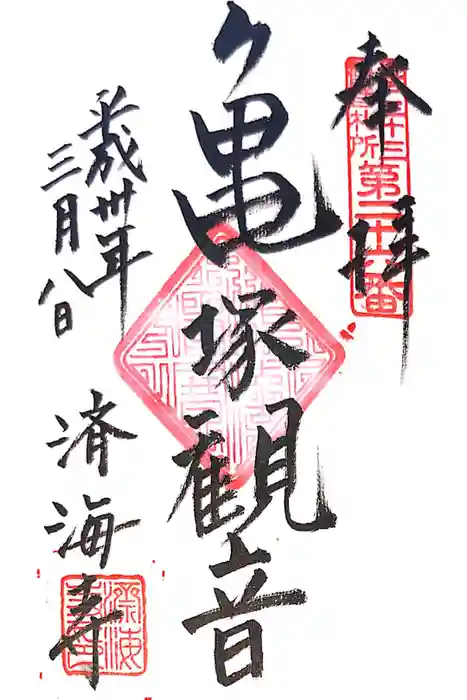 奉拝
第二十六番
亀塚観音
平成卅年
三月八日
済海寺